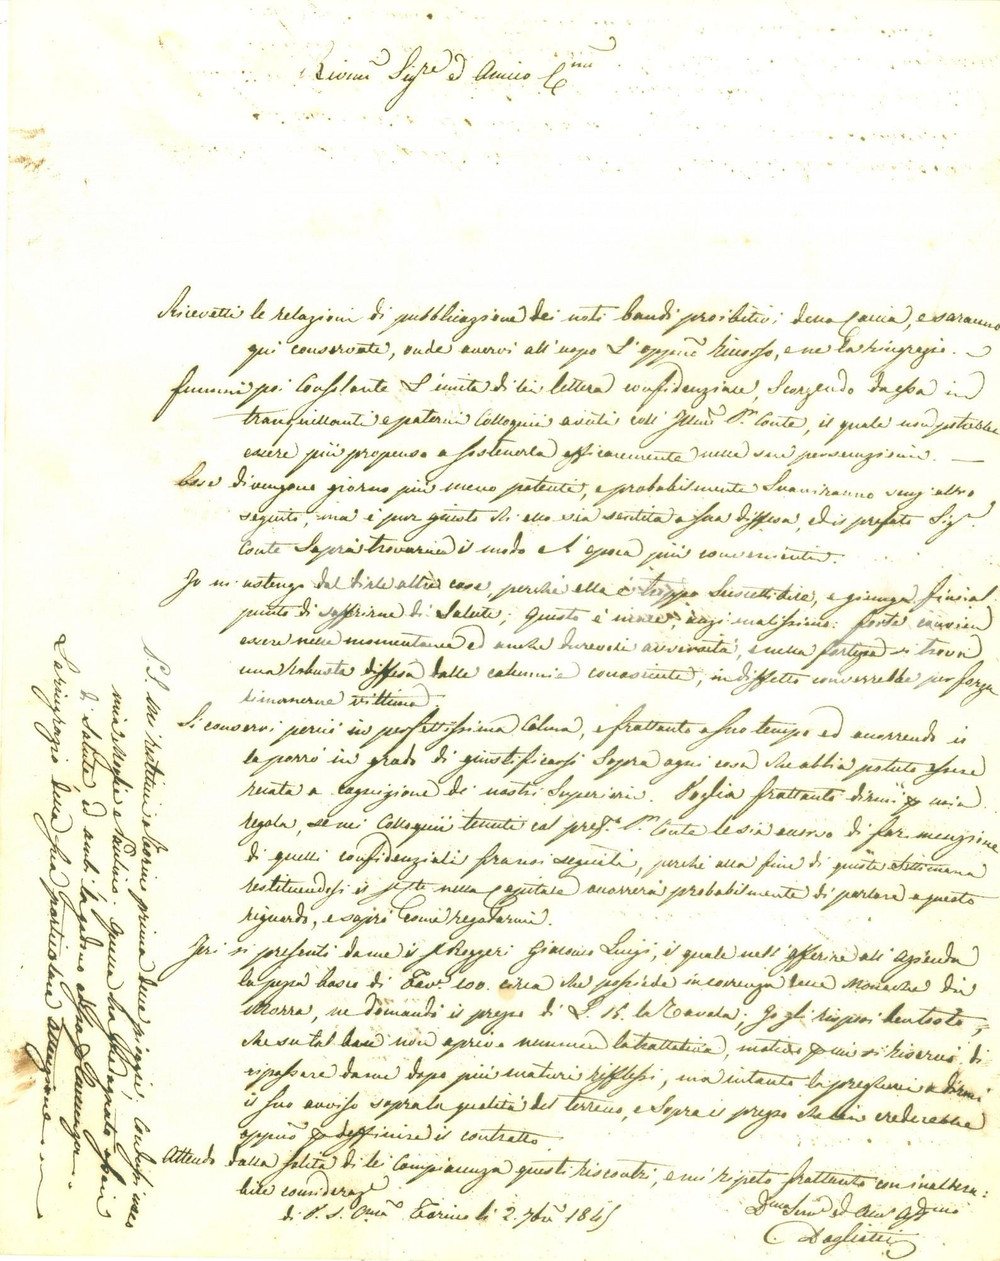 Sig.re ed Amico C.mo
Ricevetti le relazioni di pubblicazione dei noti bandi proibitivi della Caccia, e saranno
qui conservate, onde avervi all'uopo l'opp.no ricorso, e ne La ringrazio.
fummi poi Consolante l'unita di lei lettera confidenziale, Scorgendo da essa i
tranquillanti e paterni Colloquii avuti coll' Ill.mo S.r Conte, il quale non potrebbe
essere più propenso a sostenerla efficacemente nelle sue persecuzioni.
Esse divengono giorno più meno potenti, e probabilmente Svaniranno senz'altro
seguito, ma è pur giusto che ella sia sentita a sua difesa, ed il prefato Sig.r
Conte Saprà trovarne il modo e l'epoca più conveniente.
Io mi astengo dal dirle altre cose, perché ella è troppo Suscettibile, e giunge fino al
punto di soffrirne di Salute; questo è male, anzi malissimo: forte conviene
essere nelle momentanee ed anche durevoli avversità, e nella fortezza si trova
una robusta difesa dalle calunnie conosciute, in difetto converrebbe per forza
rimanerne vittima.
Si conservi perciò in perfettissima Calma, e frattanto a suo tempo ed occorrendo io
la porrò in grado di giustificarsi Sopra ogni cosa che abbia potuto essere
recata a cognizione dei nostri Superiori. Voglia frattanto dirmi p. mia
regola, se nei Colloquii tenuti col pref.o S.r Conte le sia occorso di far menzione
di quelli confidenziali fra noi seguiti, perché alla fine di questa Settimana
restituendosi il nella Capitale occorrerà probabilmente di parlare a questo
riguardo, e saprò Come regolarmi.
Jeri si presentò da me il Ruggeri Giacomo Luigi, il quale nell'offerire all'Azienda
la pezza bosco di Tav.e 100. circa che possiede in coerenza delle Monache di
Morra, ne domandò il prezzo di L. 15. la Tavola; Io gli risposi
che su tal base non aprivo nemmeno la trattativa, p. cui si riservò di
ripassare da me dopo più maturi riflessi, ma intanto la pregherei a dirmi
il suo avviso sopra la qualità del terreno, e Sopra il prezzo che Lei crederebbe
opp.no p. deffinire il contratto.
Attendo dalla solita di lei Compiacenza questi riscontri, e mi ripeto frattanto con inaltera=
bile consideraz.e
di V. S. Torino li 2. 7bre 1845
Dev.mo Serv.e ed Am.o Aff.mo
Dogliotti
P.S. Mi restituii a Torino prima delle pioggie; Condussi meco
mia Moglie e Paolina. Quella ha guadagnato assai
di Salute, ed amb.
La ringrazio della sua particolare attenzione